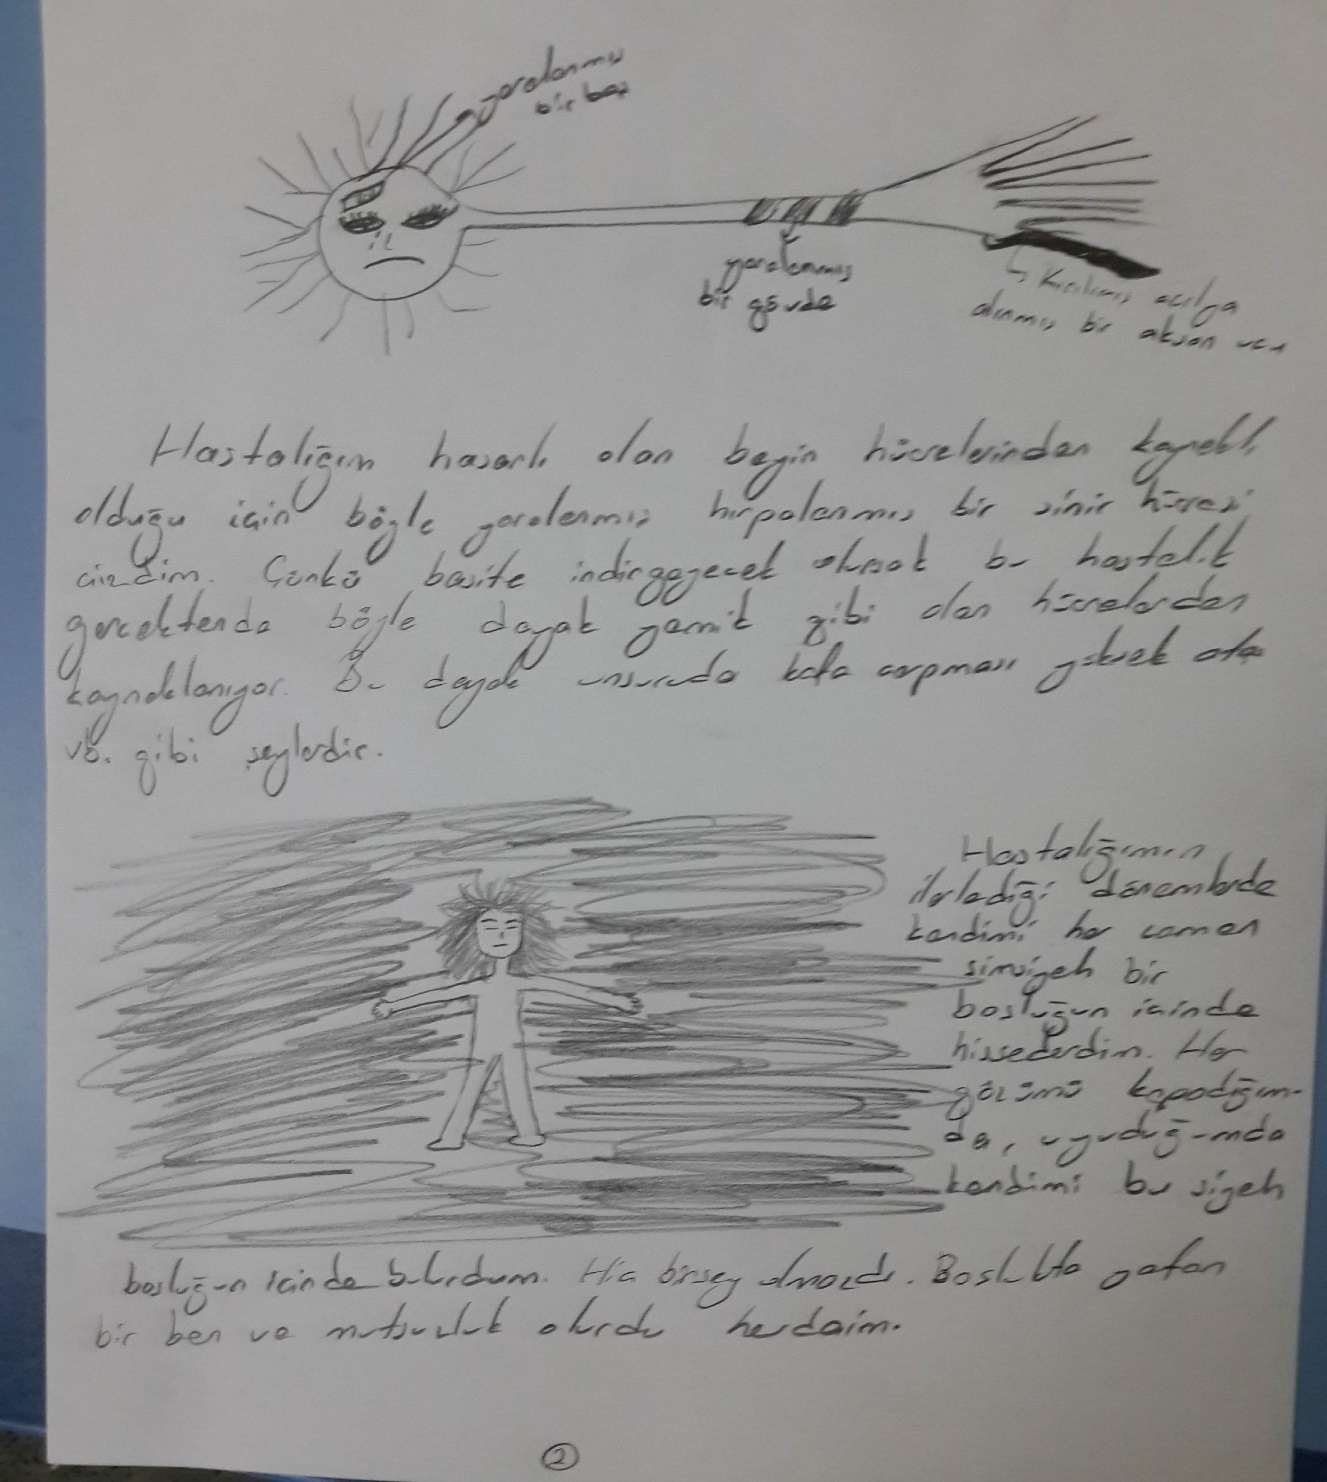 yaralanmış
bir baş
yaralanmış
bir gövde
Kırılmış alçıya
alınmış bir akson ucu
Hastalığım hasarlı olan beyin hücrelerinden kaynaklı
olduğu için böyle yaralanmış hırpalanmış bir sinir hücresi
çizdim. Çünkü basite indirgeyecek olursak bu hastalık
gerçektende böyle dayak yemiş gibi olan hücrelerden
kaynaklanıyor. Bu dayak unsuruda kafa çarpması yüksek ateş
vb. gibi şeylerdir.
Hastalığımın
ilerlediği dönemlerde
kendimi her zaman
simsiyah bir
boşluğun içinde
hissederdim. Her
gözümü kapadığım-
da, uyuduğumda
kendimi bu siyah
boşluğun içinde bulurdum. Hiç birşey olmazdı. Boşlukta yatan
bir ben ve mutsuzluk olurdu herdaim.
2